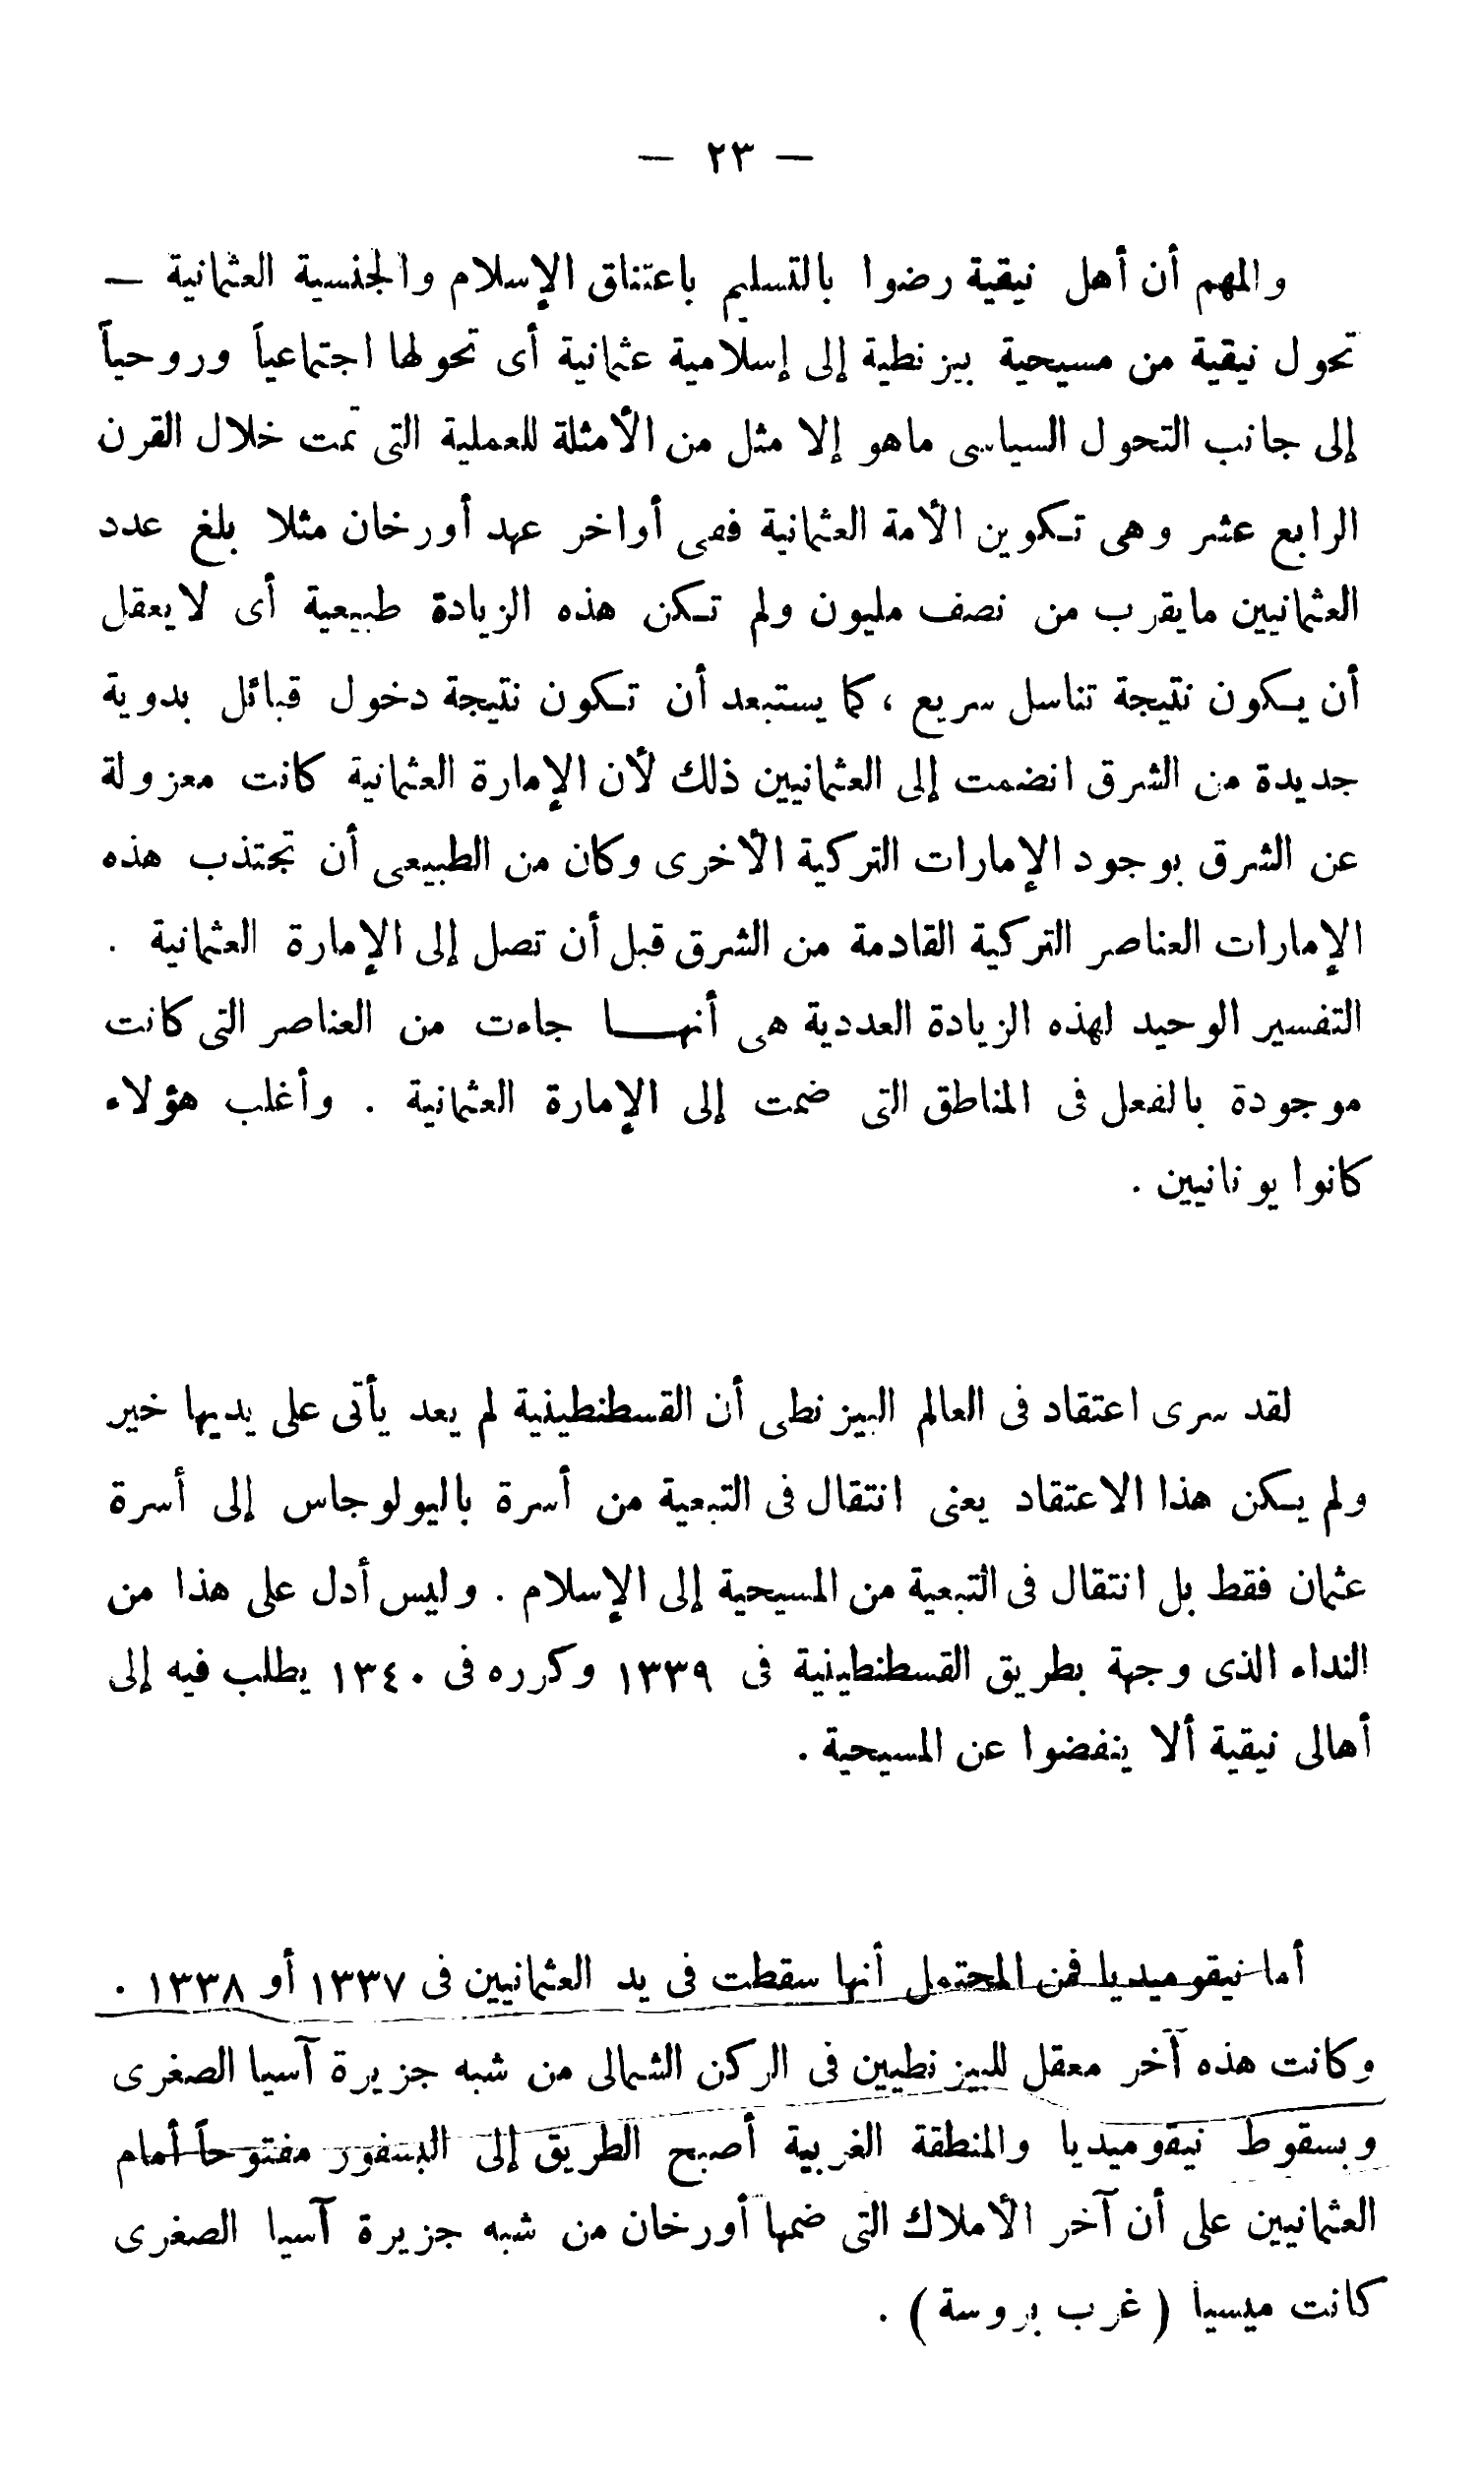 — ٢٣ —
والمهم أن أهل نيقية رضوا بالتسليم باعتناق الإسلام والجنسية العثمانية —
تحول نيقية من مسيحية بيزنطية إلى إسلامية عثمانية أى تحولها اجتماعياً وروحياً
إلى جانب التحول السياسى ماهو إلا مثل من الأمثلة للعملية التى تمت خلال القرن
الرابع عشر وهى تكوين الأمة العثمانية ففى أواخر عهد أورخان مثلا بلغ عدد
العثمانيين مايقرب من نصف مليون ولم تكن هذه الزيادة طبيعية أى لايعقل
أن يكون نتيجة تناسل سريع ، كما يستبعد أن تكون نتيجة دخول قبائل بدوية
جديدة من الشرق انضمت إلى العثمانيين ذلك لأن الإمارة العثمانية كانت معزولة
عن الشرق بوجود الإمارات التركية الأخرى وكان من الطبيعى أن تجتذب هذه
الإمارات العناصر التركية القادمة من الشرق قبل أن تصل إلى الإمارة العثمانية .
التفسير الوحيد لهذه الزيادة العددية هى أنهـــا جاءت من العناصر التى كانت
موجودة بالفعل فى المناطق التى ضمت إلى الإمارة العثمانية . وأغلب هؤلاء
كانوا يونانيين .
لقد سرى اعتقاد فى العالم البيزنطى أن القسطنطينية لم يعد يأتى على يديها خير
ولم يكن هذا الاعتقاد يعنى انتقال فى التبعية من أسرة باليولوجاس إلى أسرة
عثمان فقط بل انتقال فى التبعية من المسيحية إلى الإسلام . وليس أدل على هذا من
النداء الذى وجهة بطريق القسطنطينية فى ١٣٣٩ وكرره فى ١٣٤٠ يطلب فيه إلى
أهالى نيقية ألا ينفضوا عن المسيحية .
أما نيقوميديا فمن المحتمل أنها سقطت فى يد العثمانيين فى ١٣٣٧ أو ١٣٣٨ .
وكانت هذه آخر معقل للبيزنطيين فى الركن الشمالى من شبه جزيرة آسيا الصغرى
وبسقوط نيقوميديا والمنطقة الغربية أصبح الطريق إلى البسفور مفتوحاً أمام
العثمانيين على أن آخر الأملاك التى ضمها أورخان من شبه جزيرة آسيا الصغرى
كانت ميسيا ( غرب بروسة ) .